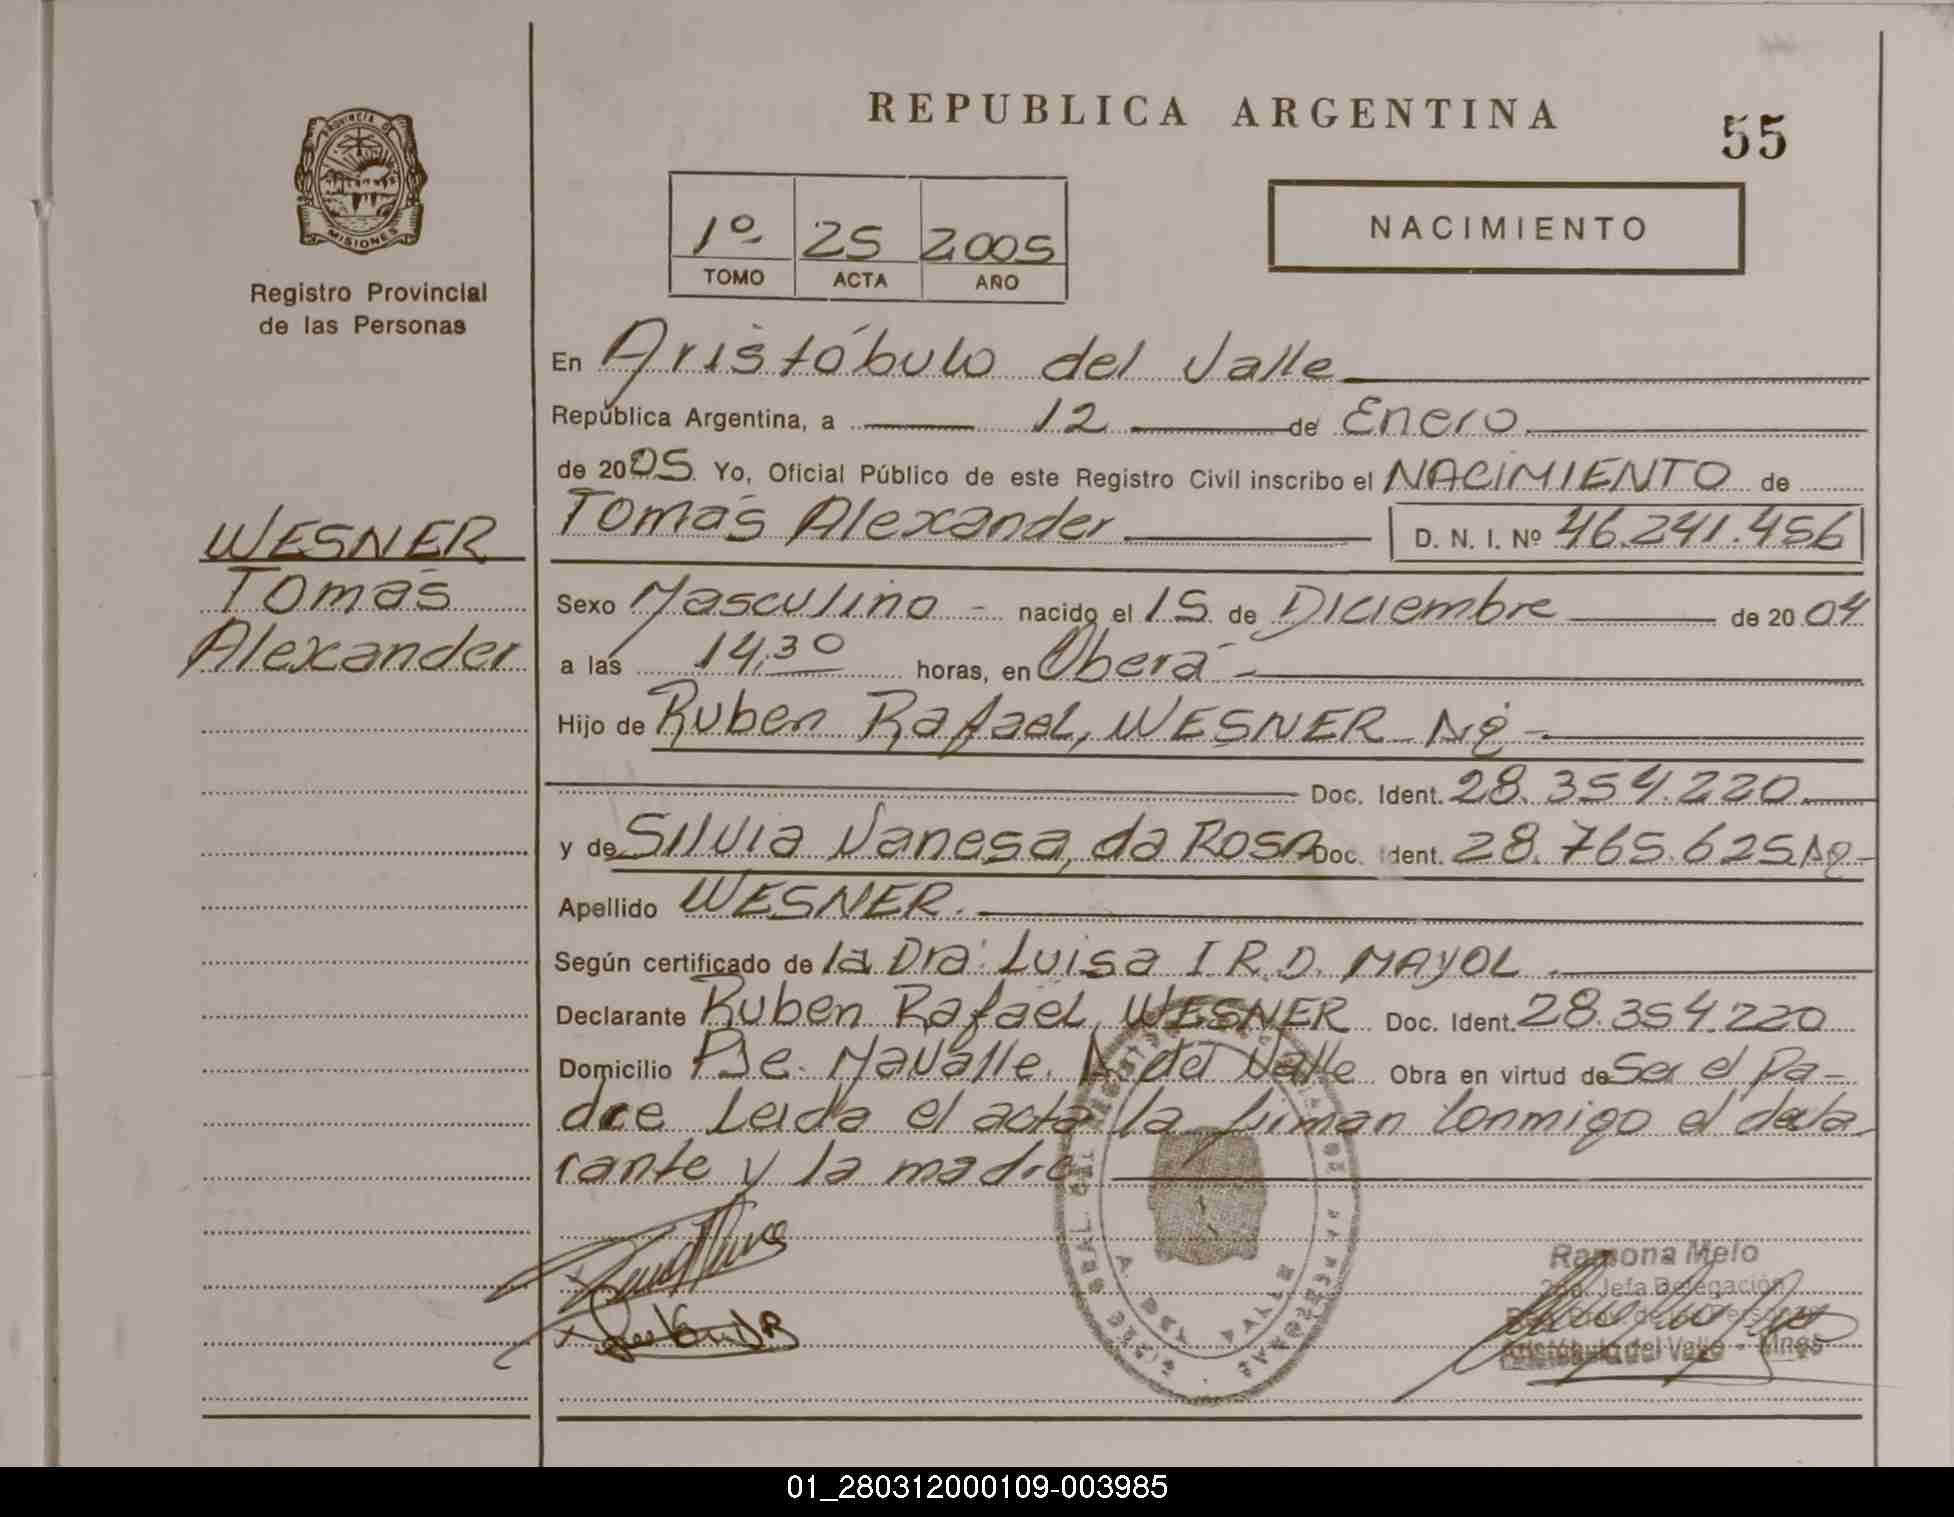 REPUBLICA ARGENTINA
55
PROVINCIA DE
MISIONES
Registro Provincial
de las Personas
1º 25 2005
TOMO ACTA AÑO
NACIMIENTO
En Aristóbulo del Valle
República Argentina, a 12 de Enero
de 2005 Yo, Oficial Público de este Registro Civil inscribo el NACIMIENTO de
Tomás Alexander D. N. I. Nº 46.241.456
WESNER
Tomás
Alexander
Sexo Masculino - nacido el 15 de Diciembre de 2004
a las 14,30 horas, en Oberá -
Hijo de Ruben Rafael, WESNER
Doc. Ident. 28.354.220
y de Silvia Vanesa, da Rosa Doc. Ident. 28.765.625
Apellido WESNER.
Según certificado de la Dra. Luisa I.R.D. MAYOL
Declarante Ruben Rafael, WESNER Doc. Ident. 28.354.220
Domicilio Pje. Mavalle. A. del Valle Obra en virtud de Ser el Pa-
dre Leida el acta la firman conmigo el decla
rante y la madre
A. DEL VALLE
Ramona Melo
2da. Jefa Delegación
Aristóbulo del Valle - Mnes
01_280312000109-003985